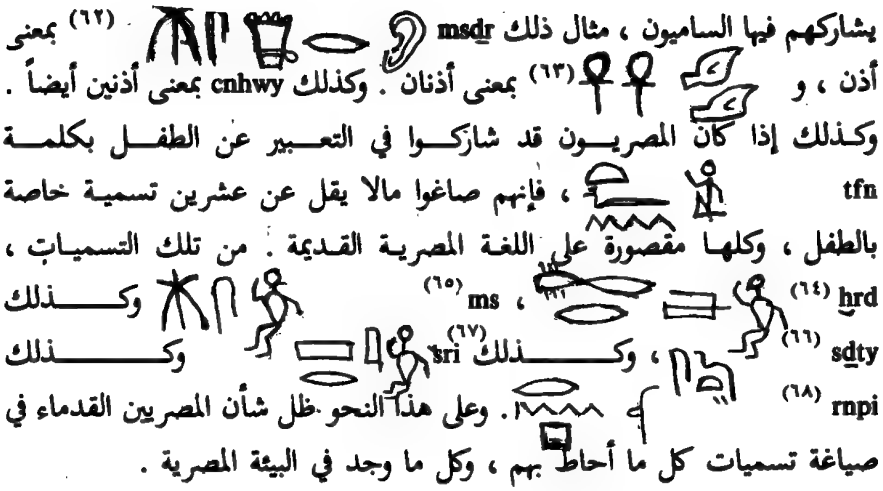 يشاركهم فيها الساميون ، مثال ذلك msḏr (٦٢) بمعنى
أذن ، و (٦٣) بمعنى أذنان . وكذلك cnhwy بمعنى أذنين أيضاً .
وكذلك إذا كان المصريون قد شاركوا في التعبير عن الطفل بكلمة
tfn ، فإنهم صاغوا مالا يقل عن عشرين تسمية خاصة
بالطفل ، وكلها مقصورة على اللغة المصرية القديمة . من تلك التسميات ،
ẖrd (٦٤) ، ms (٦٥) وكذلك
sḏty (٦٦) ، وكذلك sri (٦٧) وكذلك
rnpi (٦٨) . وعلى هذا النحو ظل شأن المصريين القدماء في
صياغة تسميات كل ما أحاط بهم ، وكل ما وجد في البيئة المصرية .